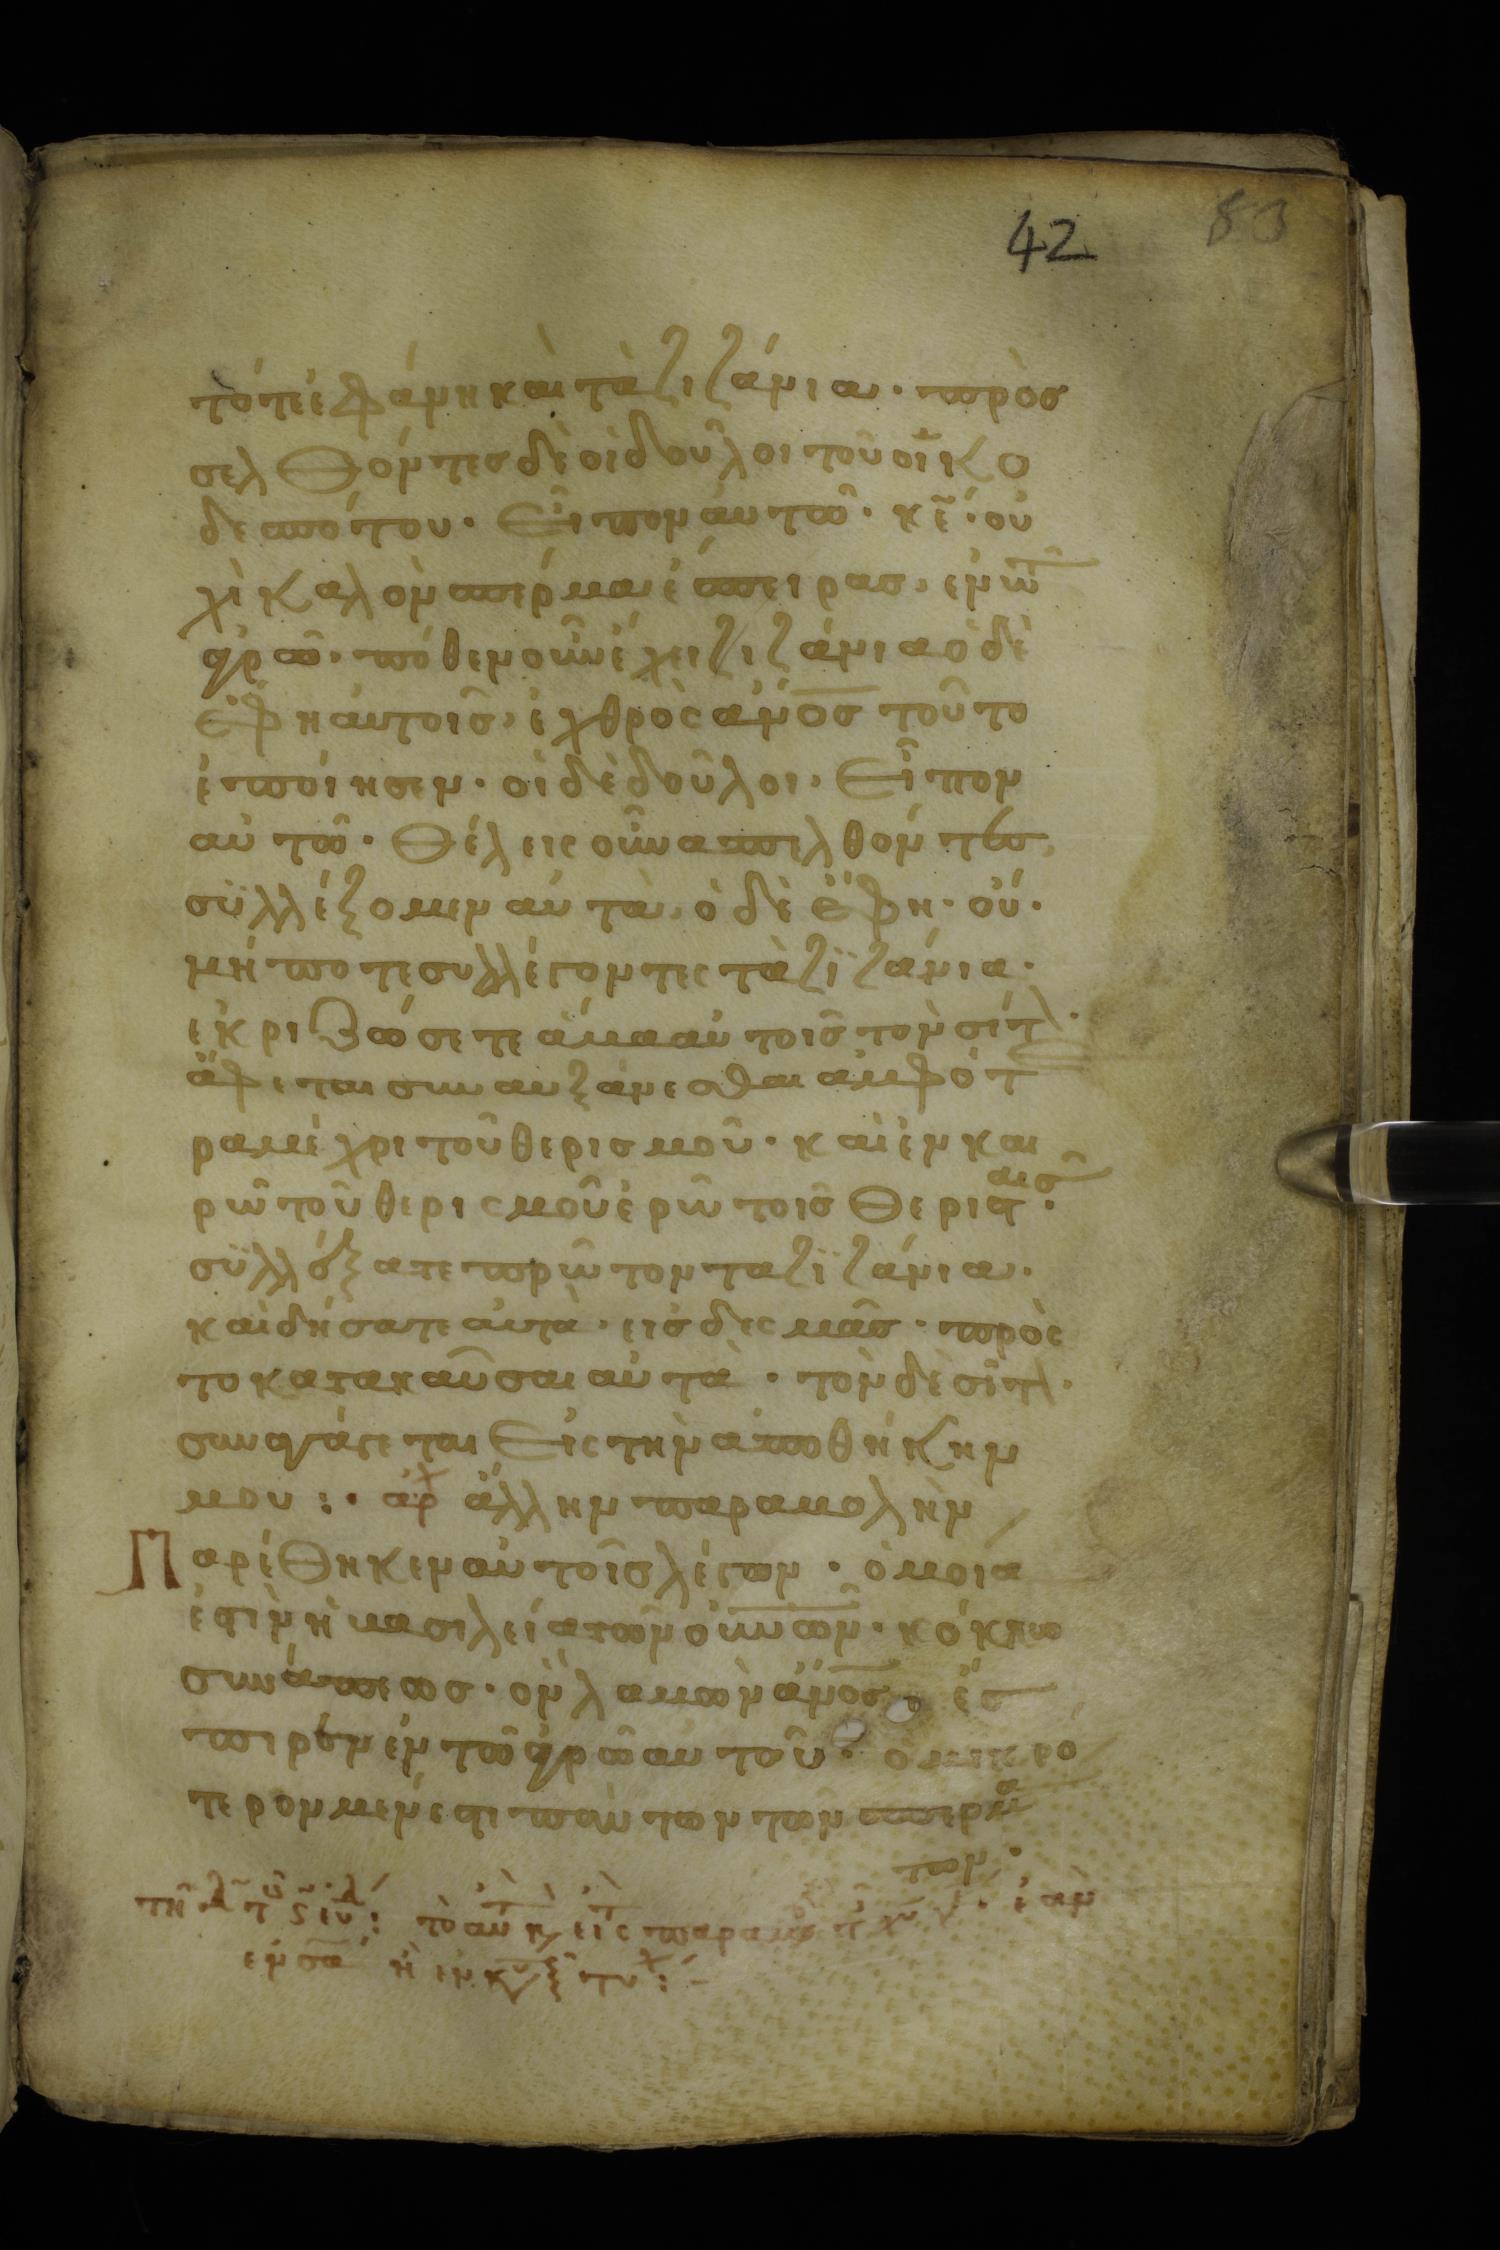 42 83
τότε ἐφάνη καὶ τὰ ζιζάνια· προσ
σελθόντες δὲ οἱ δοῦλοι τοῦ οἴκο
δεσπότου· Εἶπον αυτῶ· κε̃· οὐ
χὶ Καλὸν σπέρμα ἔσπειρας, ἐν τῶ
ἀγρῶ· πόθεν οὖν ἔχει ζιζάνια ὁ δὲ
ἔφη αὐτοῖς, ἐχθρὸς ἄνος τοῦτο
ἐποίησεν· οἱ δὲ δοῦλοι, Εἶπον
αὐτῶ· Θέλεις οὖν απελθόντες
συλλέξομεν αὐτὰ, ὁ δὲ ἔφη· οὔ·
μήποτε συλλέγοντες τὰ ζιζάνια·
ἐκριζώσετε ἅμα αὐτοῖς τὸν σίτ
ἄφεται συναυξάνεσθαι ἀμφότ
ρα μέχρι τοῦ θερισμοῦ· καὶ ἐν και
ρῶ τοῦ θερισμοῦ ἐρῶ τοῖς Θερισταῖς·
συλλέξατε πρῶτον τα ζιζάνια·
καὶ δήσατε ἀυτὰ· εις δεσμὰς· πρὸς
το κατακαῦσαι αὐτὰ· τὸν δὲ σῖτ
συναγάγεται Εἰς τὴν ἀποθήκην
μου :· αρχ ἄλλην παραβολὴν
Παρέθηκεν αὐτοῖς λέγων· ὁμοία
ἐστὶν ἡ βασιλεία τῶν οὐνῶν· κόκκω
σινάπεως· ὃν λαβὼν ἄνος, ἔσ
πειρεν ἐν τῶ ἀγρῶ αυτοῦ· ὁ μικρό
τερον μέν ἐστι πάντων τῶν σπερμά
των·